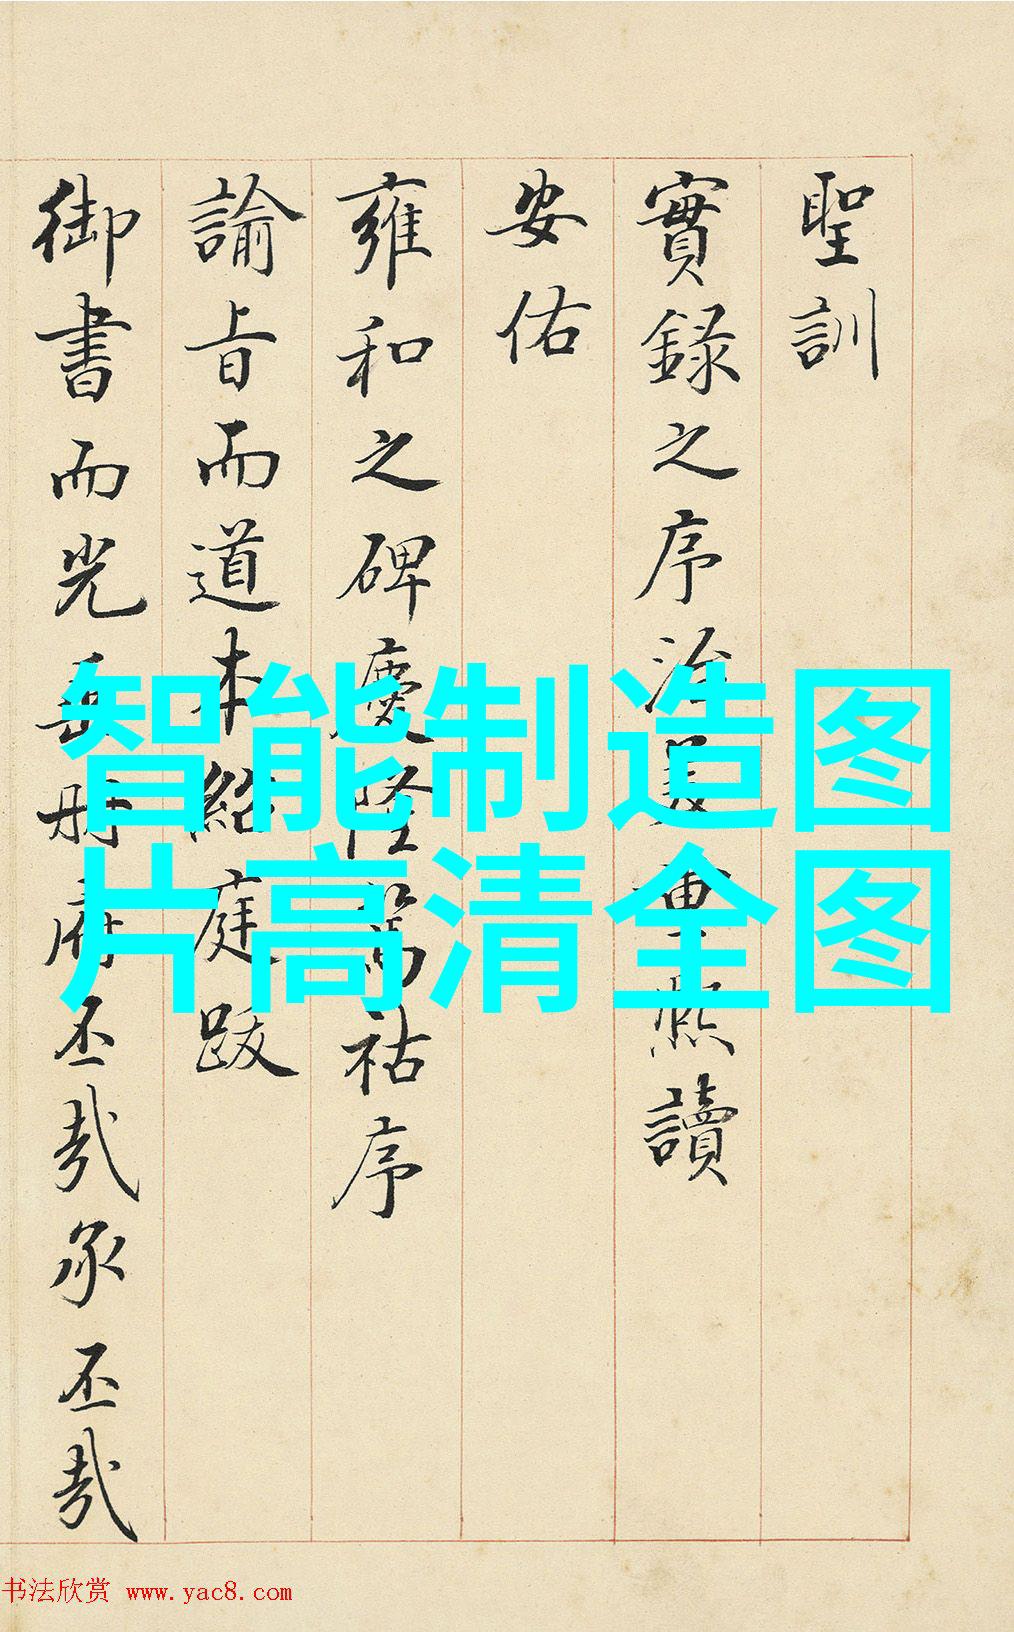 聖訓
實録之序治重熙讀
安佑
雍和之碑慶隆篤祜序
諭旨而道本紹庭跋
御書而光垂冊府丕哉承丕哉
智能制造图
片高清全图
书法欣赏 www.yac8.com